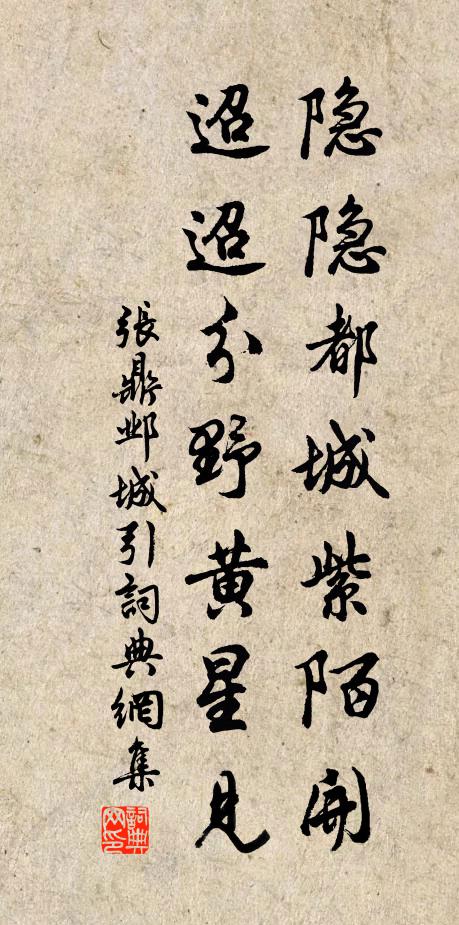 隐隐都城紫陌开
迢迢分野黄星见
張鼎邺城引詞典網集
詞典网印